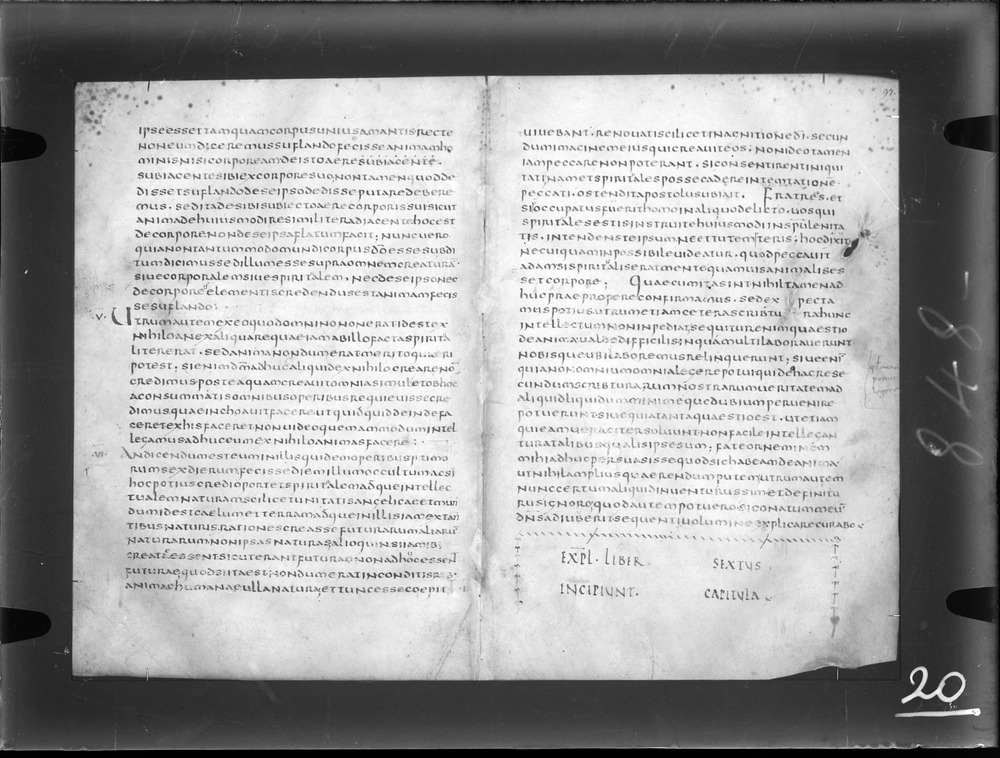 IPSEESSETTAMQUAMCORPUSUNIUSAMANTISRECTE
NONEUMDICEREMUSSUFLANDOFECISSEANIMAMHO
MINISNISICORPOREAMDEISTOAERESUBIACENTE.
SUBIACENTESIBIEXCORPORESUONONTAMENQUODDE
DISSETSUFLANDODESEIPSODEDISSEPUTAREDEBERE
MUS. SEDITADESIBISUBIECTOAERECORPORISSUISICUT
ANIMADEHUIUSMODIRESIMILITERADIACENTEHOCEST
DECORPORENONDESEIPSAFLATUMFACIT; NUNCUERO
QUIANONTANTUMMODOMUNDICORPUSDOESSESUBDI
TUMDICIMUSSEDILLUMESSESUPRAOMNEMCREATURA
SIUECORPORALEMSIUESPIRITALEM, NECDESEIPSONEC
DECORPOREELEMENTISCREDENDUSESTANIMAMFECIS
SESUFLANDO:
.V. UTRUMAUTEMEXEOQUODOMNINONONERATIDESTEX
NIHILOANEXALIQUAREQUAEIAMABILLOFACTASPIRITA
LITERERAT. SEDANIMANONDUMERATMERITOQUAERI
POTEST; SIENIMDMADHUCALIQUIDEXNIHILOCREARENO
CREDIMUSPOSTEAQUAMCREAUITOMNIASIMULETOBHOC
EACONSUMMATISOMNIBUSOPERIBUSREQUIEUISSECRE
DIMUSQUAEINCHOAUITFACEREUTQUIDQUIDDEINDEFA
CERETEXHISFACERETNONUIDEOQUEMAMMODUMINTEL
LEGAMUSADHUCEUMEXNIHILOANIMASFACERE:
.VI. ANDICENDUMESTEUMINILLISQUIDEMOPERIBUSPRIMO
RUMSEXDIERUMFECISSEDIEMILLUMOCCULTUMACSI
HOCPOTIUSCREDIOPORTETSPIRITALEMADQUEINTELLEC
TUALEMNATURAMSCILICETUNITATISANGELICAEETMUN
DUMIDESTCAELUMETTERRAMADQUEINILLISIAMEXTAN
TIBUSNATURIS.RATIONESCREASSEFUTURARUMALIARU
NATURARUMNONIPSASNATURASALIOQUINSIIAMIBI
CREATEESSENTSICUTERANTFUTURAENONADHOCESSENT
FUTURAEQUODSIITAESTNONDUMERATINCONDITISREB.
ANIMAEHUMANAEULLANATURAETTUNCESSECOEPIT
UIUEBANT. RENOUATISCILICETINAGNITIONEDI. SECUN
DUMIMAGINEMEIUSQUICREAUITEOS; NONIDEOTAMEN
IAMPECCARENONPOTERANT. SICONSENTIRENTINIQUI
TATINAMETSPIRITALESPOSSECADEREINTEMTATIONE
PECCATI.OSTENDITAPOSTOLUSUBIAIT. FRATRES.ET
SIOCCUPATUSFUERITHOMOINALIQUODELICTO.UOSQUI
SPIRITALESESTISINSTRUITEHUIUSMODIINSPULENITA
TIS. INTENDENSTEIPSUMNEETTUTEMTERIS; HOCDIXI
NECUIQUAMINPOSSIBILEUIDEATUR. QUODPECCAUIT
ADAMSISPIRITALISERATMENTEQUAMUISANIMALISES
SETCORPORE; QUAECUMITASINTNIHILTAMENAD
HUCPRAEPROPERECONFIRMAMUS. SEDEX PECTA
MUSPOTIUSUTRUMETIAMCETERASCRIBTU RAHUNC
INTELLECTUMNONINPEDIAT;SEQUITURENIMQUAESTIO
DEANIMAUALDEDIFFICILIS;INQUAMULTILABORAUERUNT
NOBISQUEUBILABOREMUSRELINQUERUNT; SIUEENI
QUIANONOMNIUMOMNIALEGEREPOTUIQUIDEHACRESE
CUNDUMSCRIBTURARUMNOSTRARUMUERITATEMAD
ALIQUIDLIQUIDUMMINIMEQUEDUBIUMPERUENIRE
POTUERUNTSIUEQUIATANTAQUAESTIOEST. UTETIAM
QUIEAMUERACITERSOLUUNTNONFACILEINTELLEGAN
TURATALIBUSQUALISIPSESUM; FATEORNEMINEM
MIHIADHUCPERSUASISSEQUODSICHABEAMDEANIMA
UTNIHILAMPLIUSQUAERENDUMPUTEMUTRUMAUTEM
NUNCCERTUMALIQUIDINUENTURUSSIMETDEFINITU
RUSIGNOROQUODAUTEMPOTUERO;SICONATUMMEU
DNSADIUBERITSEQUENTIUOLUMINEEXPLICARECURABO
EXPL. LIBER SEXTUS
INCIPIUNT. CAPITULA
848-
20